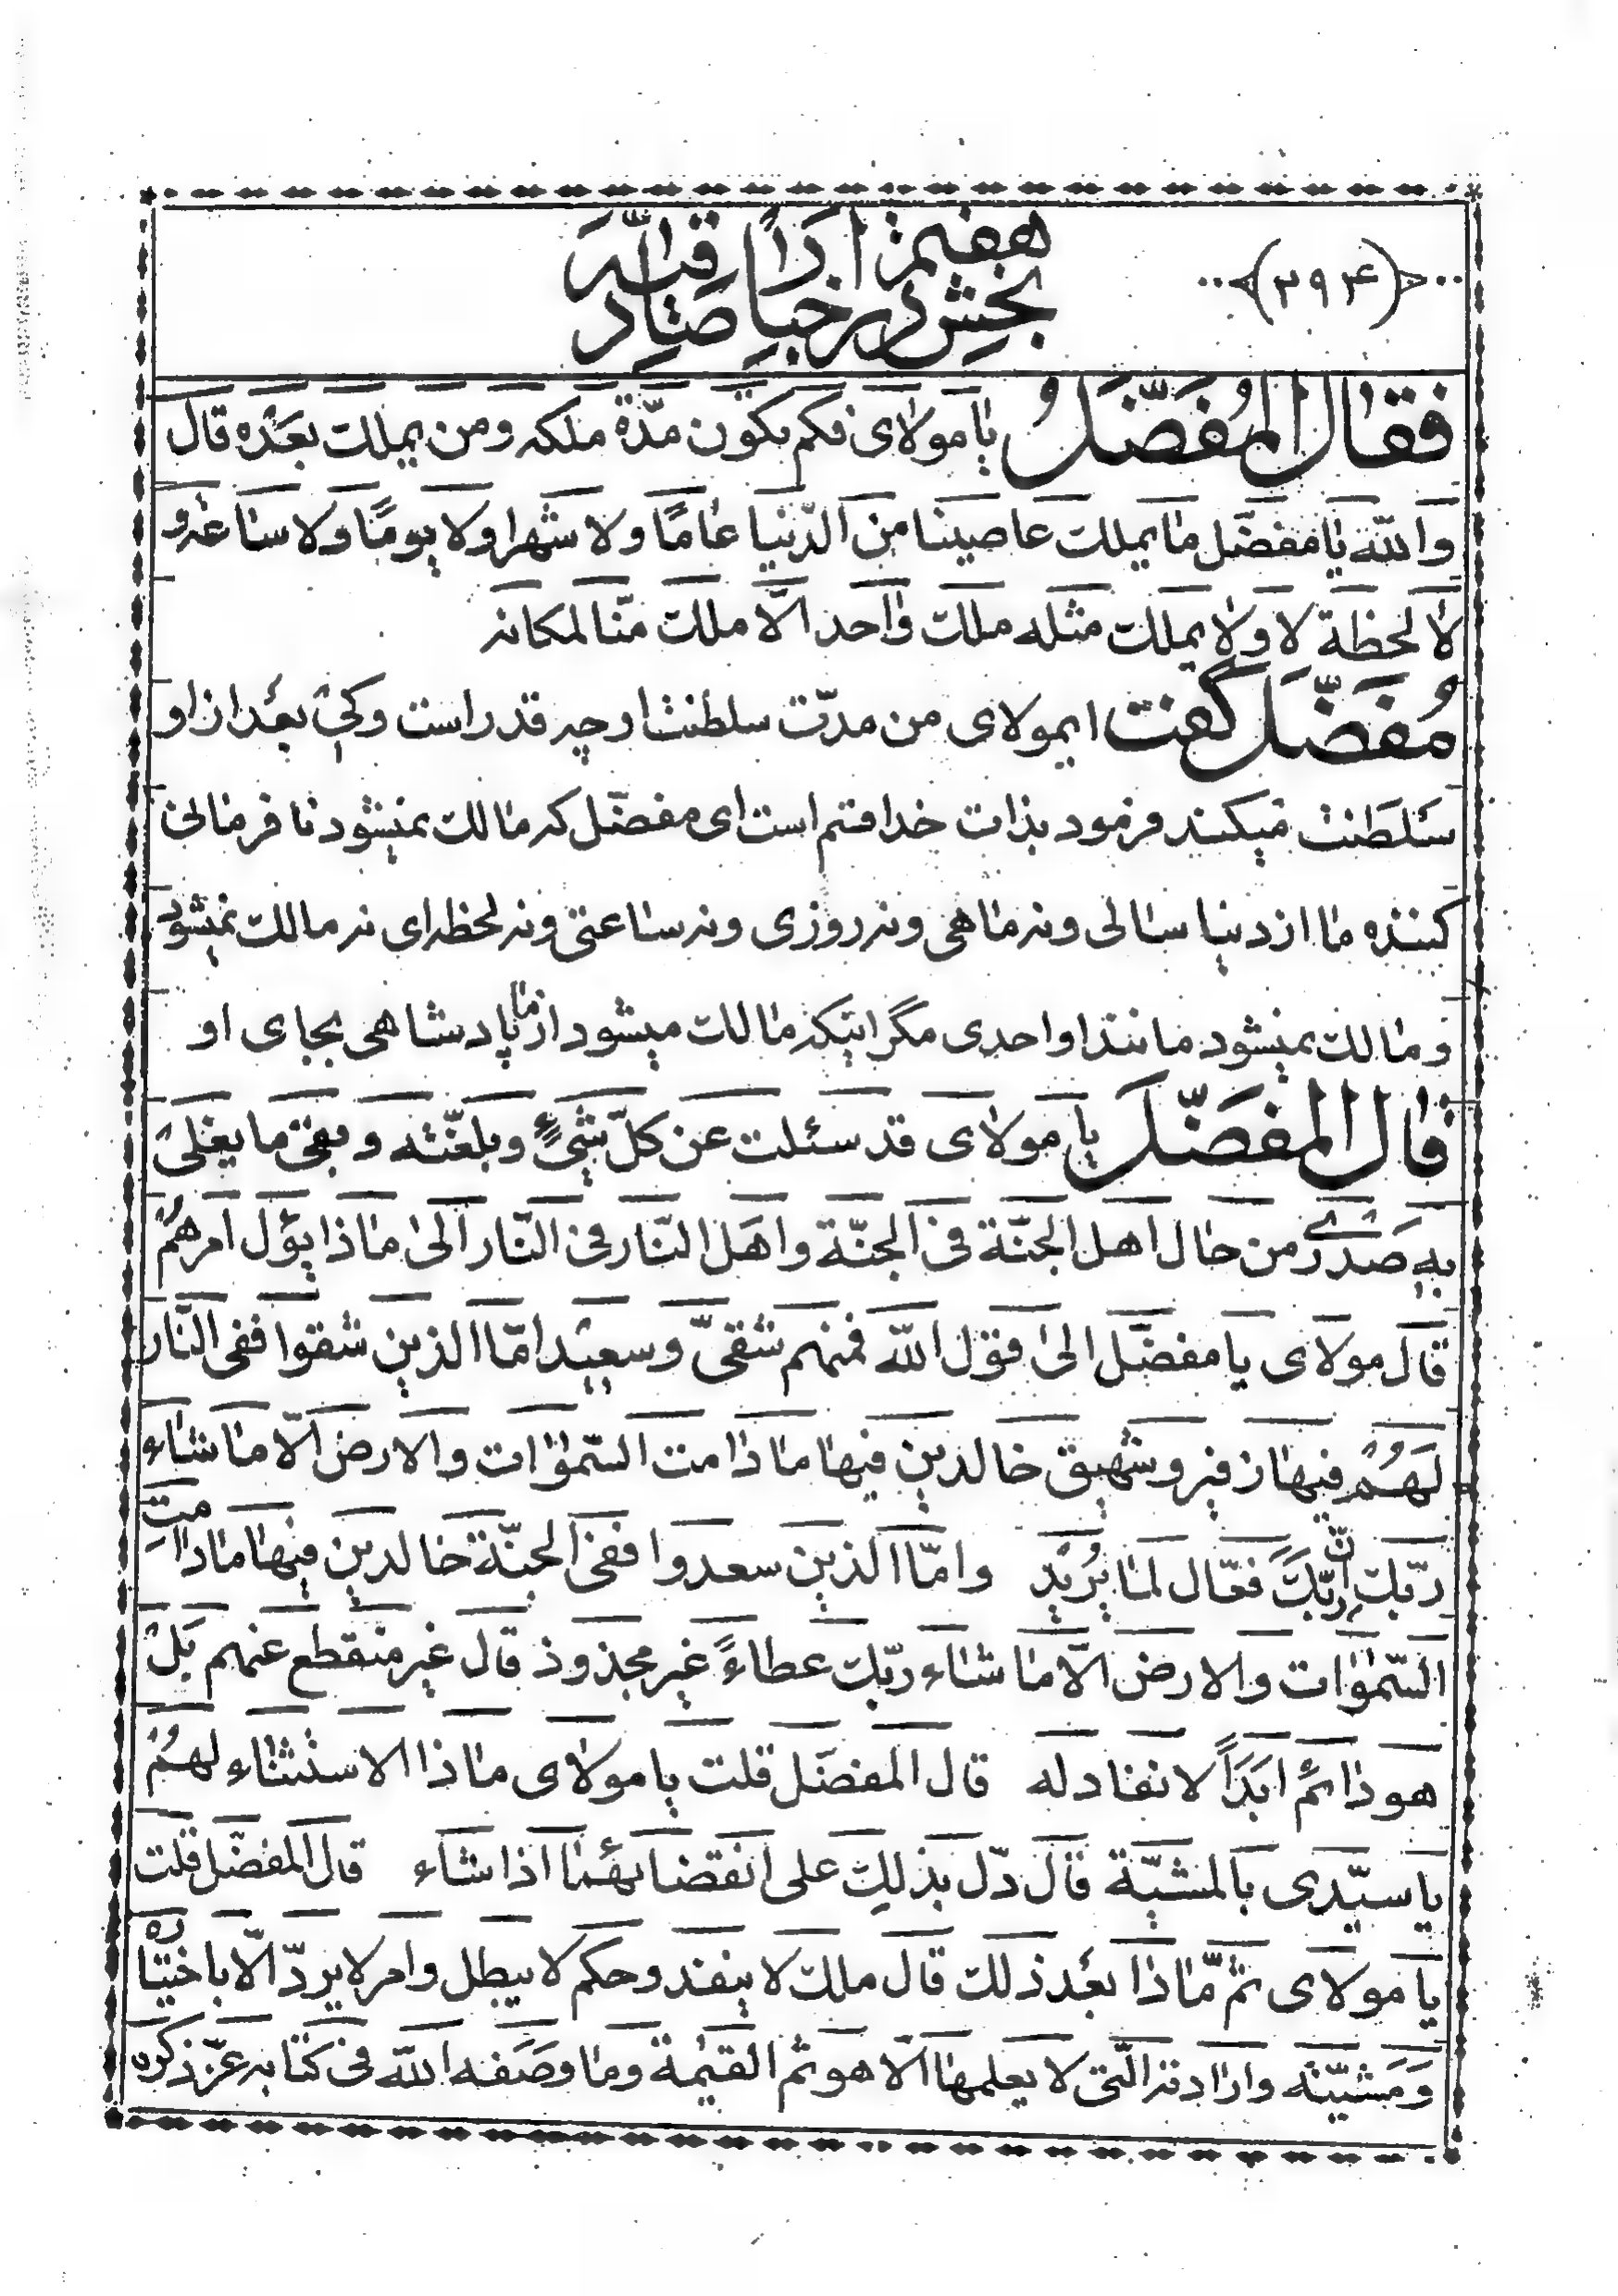 ﴿۲۹۴﴾
بخش هفتم در اخبار صادقیه
فقال المُفضّلُ یا مولای فکم یکون مدّة ملکه ومن یملک بعده قال
والله یا مفضّل ما یملک عاصینا من الدّنیا عامًا ولا شهرا ولا یومًا ولا ساعه و
لا لحظة لا ولا یملک مثله ملک واحد الّا ملک منّا لمکانه
مُفضّل گفت ایمولای من مدّت سلطنت او چه قدر است و کی بعد از او
سَلطَنت میکند فرمود بذات خدا قسم است ای مفضّل که مالک نمیشود نا فرمانی
کننده ما از دنیا سالی ونه ماهی ونه روزی ونه ساعتی ونه لحظه ای نه مالک نمیشود
و مالک نمیشود مانند او احدی مگر اینکه مالک میشود از ما پادشاهی بجای او
قال المفضّل یا مولای قد سئلت عن کلّ شیءٍ وبلغنّه وبقی ما یغلی
به صَدری من حال اهل الجنّة فی الجنّة واهل النّار فی النّار الی ماذا یؤل امرهُم
قال مولای یا مفضّل الی قول الله فمنهم شقیّ وسعید امّا الذین شقوا ففی النّار
لَهُم فیها زفیر وشهیق خالدین فیها ما دامت السّموات والارض الّا ما شاء
ربّک اِنّ ربّکَ فعّال لما یُرید وامّا الذین سعدوا ففی الجنّة خالدین فیها ما دامتِ
السّموات والارض الّا ما شاء ربّک عطاءً غیر مجذوذ قال غیر منقطع عنهم بَلْ
هو دائم ابَدَاً لا نفاد له قال المفضّل قلت یا مولای ماذا الاستثناء لهُم
یا سیّدی بالمشیّة قال دّل بذلک علی انقضائهما اذا شاء قال المفضّل قلت
یا مولای ثمّ ماذا بعد ذلک قال ملک لا ینفند وحکم لا یبطل وامر لا یردّ الّا باختیاره
وَمَشیّته وارادته الّتی لا یعلمها الّا هو ثم القیٰمة وما وصَفه الله فی کتابه عزّ ذکره